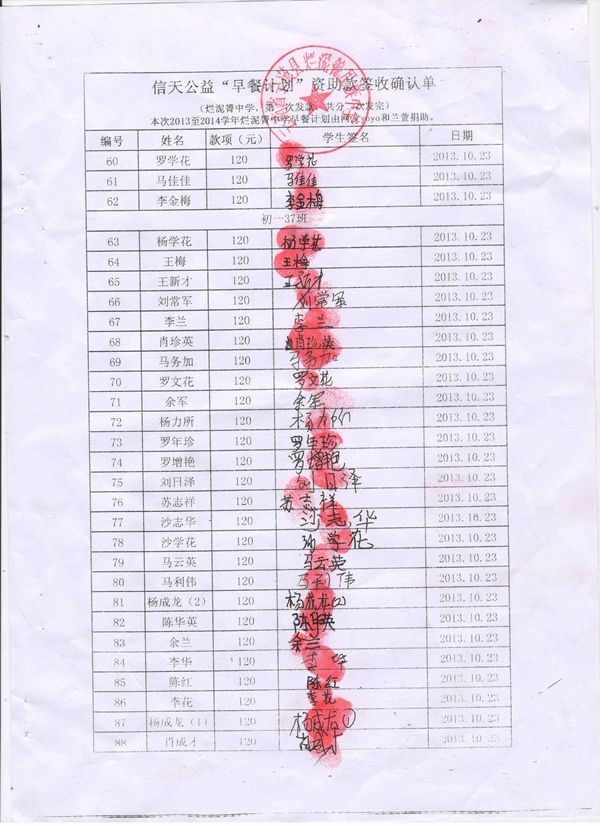 信天公益“早餐计划”资助款签收确认单
(烂泥箐中学，第一次发款，共分二次发完)
本次2013至2014学年烂泥箐中学早餐计划由网友yoyo和兰萱捐助。
编号 姓名 款项（元） 学生签名 日期
60 罗学花 120 罗学花 2013.10.23
61 马佳佳 120 马佳佳 2013.10.23
62 李金梅 120 李金梅 2013.10.23
初一37班
63 杨学花 120 杨学花 2013.10.23
64 王梅 120 王梅 2013.10.23
65 王新才 120 王新才 2013.10.23
66 刘常军 120 刘常军 2013.10.23
67 李兰 120 李兰 2013.10.23
68 肖珍英 120 肖珍英 2013.10.23
69 马务加 120 马务加 2013.10.23
70 罗文花 120 罗文花 2013.10.23
71 余军 120 余军 2013.10.23
72 杨力所 120 杨力所 2013.10.23
73 罗年珍 120 罗年珍 2013.10.23
74 罗增艳 120 罗增艳 2013.10.23
75 刘日泽 120 刘日泽 2013.10.23
76 苏志祥 120 苏志祥 2013.10.23
77 沙志华 120 沙志华 2013.10.23
78 沙学花 120 沙学花 2013.10.23
79 马云英 120 马云英 2013.10.23
80 马利伟 120 马利伟 2013.10.23
81 杨成龙（2） 120 杨成龙(2) 2013.10.23
82 陈华英 120 陈华英 2013.10.23
83 余兰 120 余兰 2013.10.23
84 李华 120 李华 2013.10.23
85 陈红 120 陈红 2013.10.23
86 李花 120 李花 2013.10.23
87 杨成龙（1） 120 杨成龙① 2013.10.23
88 肖成才 120 2013.10.23